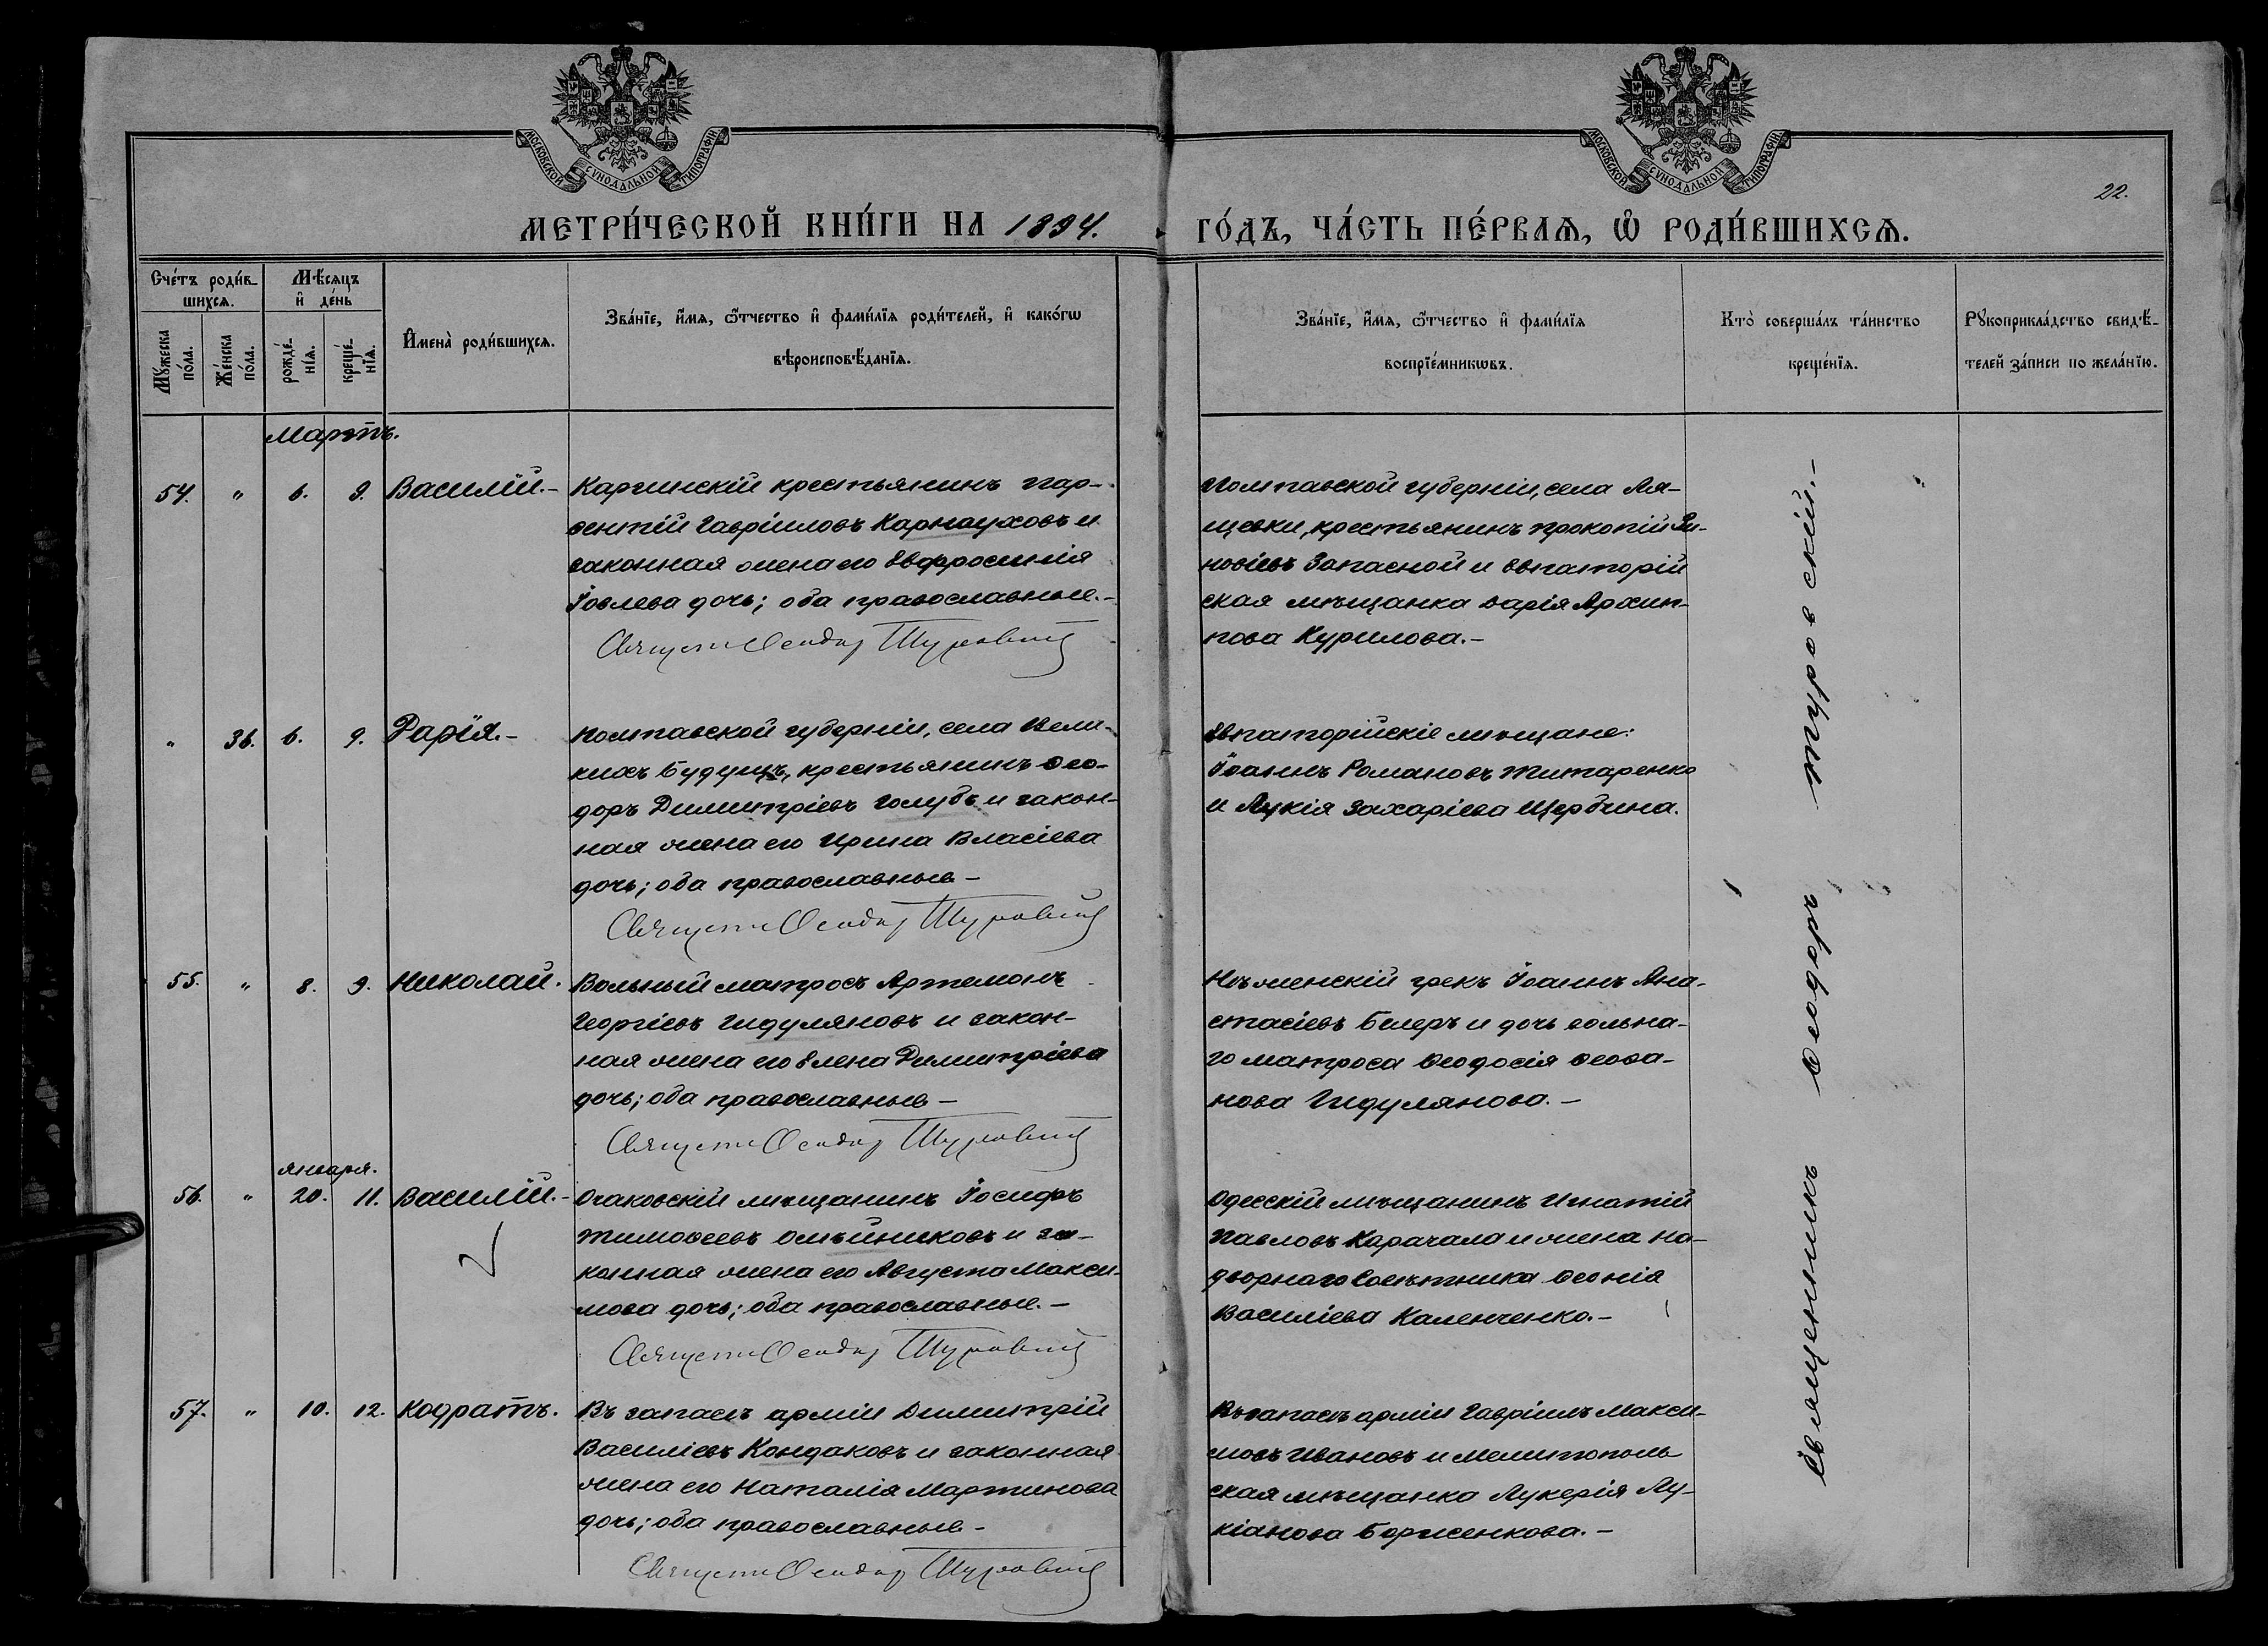 МОСКОВСКОЙ СѴНОДАЛЬНОЙ ТИПОГРАФІИ
МОСКОВСКОЙ СѴНОДАЛЬНОЙ ТИПОГРАФІИ
22.
МЕТРИ́ЧЕСКОЙ КНИ́ГИ НА 1894. ГО́ДЪ, ЧА́СТЬ ПЕ́РВАѦ, Ѽ РОДИ́ВШИХСѦ.
Сче́тъ роди́в-
шихсѧ.
Мѣ́сѧцъ
и҆ де́нь
Мꙋ́жеска по́ла.
Же́нска по́ла.
рожде́-
нїѧ.
креще́-
нїѧ.
И҆мена̀ роди́вшихсѧ.
Зва́нїе, и҆́мѧ, ѻ҆́тчество и҆ фами́лїѧ роди́телей, и҆ како́гѡ
вѣроисповѣ́данїѧ.
Зва́нїе, и҆́мѧ, ѻ҆́тчество и҆ фами́лїѧ
воспрїе́мникѡвъ.
Кто̀ соверша́лъ та́инство
креще́нїѧ.
Рꙋкоприкла́дство свидѣ́-
телей за́писи по жела́нїю.
Мартъ.
54. " 6. 9. Василій.- Каргинскій крестьянинъ Пар-
ѳентій Гавріиловъ Карнауховъ и
законная жена его Евфросинія
Іовлева дочь; оба православные.-
Священ Ѳеодор Туровскій
Полтавской губерніи, села Ля-
щевки, крестьянинъ Прокопій Зи-
новіевъ Запасной и Евпаторій
ская мѣщанка Дарія Архип-
пова Курилова.-
" 36. 6. 9. Дарія.- Полтавской губерніи, села Вели-
кихъ Будищъ, крестьянинъ Ѳео-
доръ Димитріевъ Голубъ и закон-
ная жена его Ирина Власіева
дочь; оба православные-
Священ Ѳеодор Туровскій
Евпаторійскіе мѣщане:
Іоаннъ Романовъ Титаренко
и Лукія Захаріева Щербина.
55. " 8. 9. Николай. Вольный матросъ Артемонъ
Георгіевъ Гидуляновъ и закон-
ная жена его Елена Димитріева
дочь; оба православные-
Священ Ѳеодор Туровскій
Нѣженскій грекъ Іоаннъ Ана-
стасіевъ Белеръ и дочь вольна-
го матроса Ѳеодосія Ѳеоѳа-
нова Гидулянова.-
января.
56. " 20. 11. Василій.- Очаковскій мѣщанинъ Іосифъ
Тимоѳеевъ Олѣйниковъ и за-
конная жена его Августа Макси-
мова дочь; оба православные.-
Священ Ѳеодор Туровскій
Одесскій мѣщанинъ Игнатій
Павловъ Карачала и жена на-
дворнаго Совѣтника Ѳеонія
Василіева Каленченко.-
57. " 10. 12. Кодратъ. Въ запасѣ арміи Димитрій
Василіевъ Кондаковъ и законная
жена его Наталія Мартинова
дочь; оба православные-
Священ Ѳеодор Туровскій
Въ запасѣ арміи Гавріилъ Макси-
мовъ Ивановъ и Мелитополь
ская мѣщанка Лукерія Лу-
кіанова Борженкова.-
Священникъ Ѳеодоръ Туровскій.-